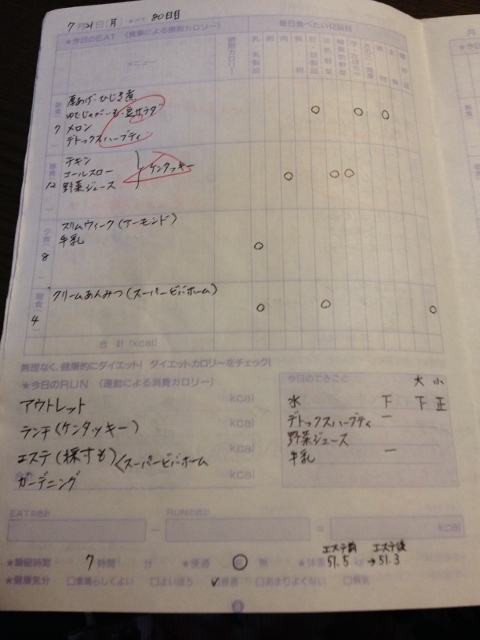 7月21日(月) 80日目
★今日のEAT (食事による摂取カロリー)
毎日食べたい10品目
メニュー
摂取カロリー
乳・乳製品
卵
肉
朝食
7
厚あげ・ひじき煮
ゆでじゃがいも・豆サラダ
メロン
デトックスハーブティ
昼食
12
チキン
コールスロー
野菜ジュース
ケンタッキー
夕食
8
スリムウィーク(アーモンド)
牛乳
間食
4
クリームあんみつ(スーパービバホーム)
合 計 (kcal)
無理なく、健康的にダイエット! ダイエットカロリーをチェック!
★今日のRUN (運動による消費カロリー)
アウトレット kcal
ランチ(ケンタッキー) kcal
エステ(採寸も)<スーパービバホーム kcal
ガーデニング kcal
今日のできごと 大 小
水 下 下 正
デトックスハーブティ 一
野菜ジュース
牛乳 一
EATの合計 − RUNの合計 = kcal
エステ前 エステ後
★睡眠時間 7 時間 分 ★便通 有 無 ★体重 51.5 kg →51.3
★健康気分 □素晴らしくよい □よいほう ✓普通 □あまりよくない □病気